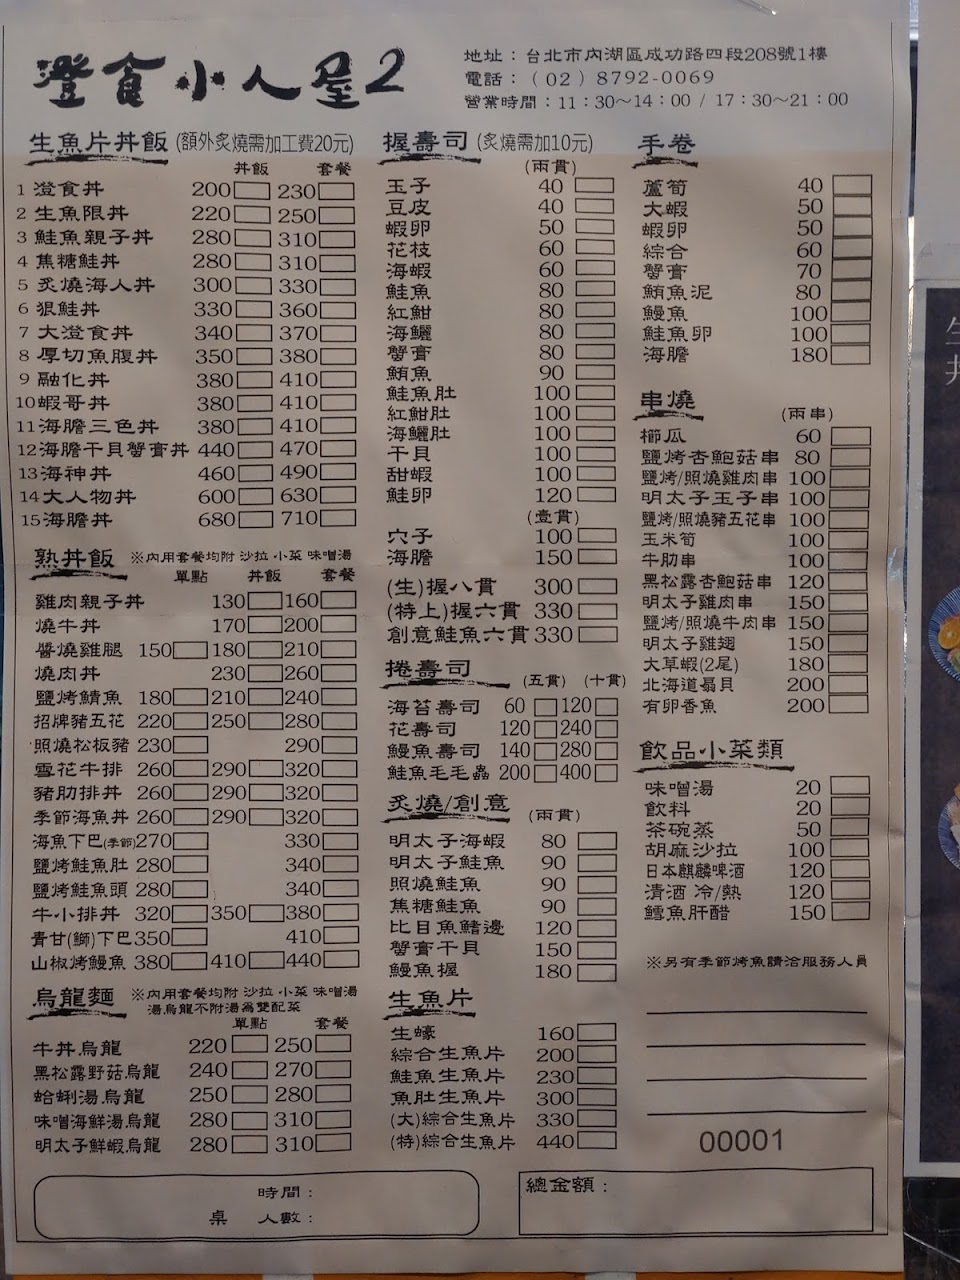 澄食小人屋2
地址：台北市內湖區成功路四段208號1樓
電話：（02）8792-0069
營業時間：11：30～14：00 / 17：30～21：00
生魚片丼飯(額外炙燒需加工費20元)
丼飯 套餐
1 澄食丼 200 230
2 生魚限丼 220 250
3 鮭魚親子丼 280 310
4 焦糖鮭丼 280 310
5 炙燒海人丼 300 330
6 狠鮭丼 330 360
7 大澄食丼 340 370
8 厚切魚腹丼 350 380
9 融化丼 380 410
10 蝦哥丼 380 410
11 海膽三色丼 380 410
12 海膽干貝蟹膏丼 440 470
13 海神丼 460 490
14 大人物丼 600 630
15 海膽丼 680 710
熟丼飯 ※內用套餐均附 沙拉 小菜 味噌湯
單點 丼飯 套餐
雞肉親子丼 130 160
燒牛丼 170 200
醬燒雞腿 150 180 210
燒肉丼 230 260
鹽烤鯖魚 180 210 240
招牌豬五花 220 250 280
照燒松板豬 230 290
雪花牛排 260 290 320
豬肋排丼 260 290 320
季節海魚丼 260 290 320
海魚下巴(季節) 270 330
鹽烤鮭魚肚 280 340
鹽烤鮭魚頭 280 340
牛小排丼 320 350 380
青甘(鰤)下巴 350 410
山椒烤鰻魚 380 410 440
烏龍麵 ※內用套餐均附 沙拉 小菜 味噌湯
湯烏龍不附湯為雙配菜
單點 套餐
牛丼烏龍 220 250
黑松露野菇烏龍 240 270
蛤蜊湯烏龍 250 280
味噌海鮮湯烏龍 280 310
明太子鮮蝦烏龍 280 310
握壽司(炙燒需加10元)
(兩貫)
玉子 40
豆皮 40
蝦卵 50
花枝 60
海蝦 60
鮭魚 80
紅魽 80
海鱺 80
蟹膏 80
鮪魚 90
鮭魚肚 100
紅魽肚 100
海鱺肚 100
干貝 100
甜蝦 100
鮭卵 120
(壹貫)
穴子 100
海膽 150
(生)握八貫 300
(特上)握六貫 330
創意鮭魚六貫 330
捲壽司 (五貫) (十貫)
海苔壽司 60 120
花壽司 120 240
鰻魚壽司 140 280
鮭魚毛毛蟲 200 400
炙燒/創意 (兩貫)
明太子海蝦 80
明太子鮭魚 90
照燒鮭魚 90
焦糖鮭魚 90
比目魚鰭邊 120
蟹膏干貝 150
鰻魚握 180
生魚片
生蠔 160
綜合生魚片 200
鮭魚生魚片 230
魚肚生魚片 300
(大)綜合生魚片 330
(特)綜合生魚片 440
手卷
蘆筍 40
大蝦 50
蝦卵 50
綜合 60
蟹膏 70
鮪魚泥 80
鰻魚 100
鮭魚卵 100
海膽 180
串燒 (兩串)
櫛瓜 60
鹽烤杏鮑菇串 80
鹽烤/照燒雞肉串 100
明太子玉子串 100
鹽烤/照燒豬五花串 100
玉米筍 100
牛肋串 100
黑松露杏鮑菇串 120
明太子雞肉串 150
鹽烤/照燒牛肉串 150
明太子雞翅 150
大草蝦(2尾) 180
北海道扇貝 200
有卵香魚 200
飲品小菜類
味噌湯 20
飲料 20
茶碗蒸 50
胡麻沙拉 100
日本麒麟啤酒 120
清酒 冷/熱 120
鱈魚肝醋 150
※另有季節烤魚請洽服務人員
00001
時間：
桌 人數：
總金額：
生
丼